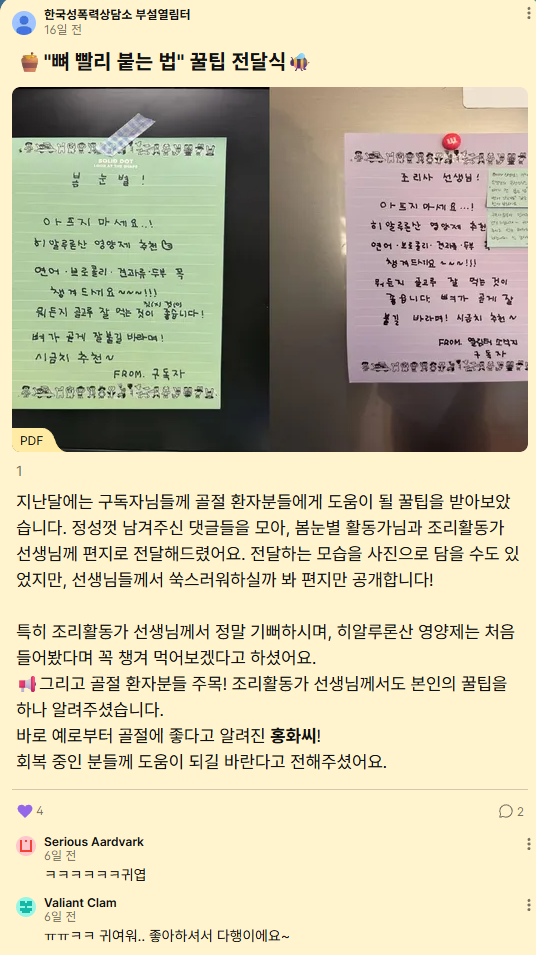 한국성폭력상담소 부설열림터
16일 전
"뼈 빨리 붙는 법" 꿀팁 전달식
SOLID DOT
봄눈별!
아프지마세요..!
히알루론산 영양제 추천
연어·브로콜리·견과류·두부 꼭
챙겨드시기요~~~!!!
뭐든지 골고루 잘 먹는 것이 좋습니다!
뼈가 곧게 잘붙길 바라며!
시금치 추천~
FROM. 구독자
조리사 선생님!
아프지 마세요...!
히알루론산 영양제 추천
연어·브로콜리·견과류·두부
챙겨드시기요~~~!!!
뭐든지 골고루 잘 먹는 것이
좋습니다. 뼈가 곧게 잘
붙길 바라며! 시금치 추천~
FROM. 열림터 소식지
구독자
PDF
1
지난달에는 구독자님들께 골절 환자분들에게 도움이 될 꿀팁을 받아보았
습니다. 정성껏 남겨주신 댓글들을 모아, 봄눈별 활동가님과 조리활동가
선생님께 편지로 전달해드렸어요. 전달하는 모습을 사진으로 담을 수도 있
었지만, 선생님들께서 쑥스러워하실까 봐 편지만 공개합니다!
특히 조리활동가 선생님께서 정말 기뻐하시며, 히알루론산 영양제는 처음
들어봤다며 꼭 챙겨 먹어보겠다고 하셨어요.
📢그리고 골절 환자분들 주목! 조리활동가 선생님께서도 본인의 꿀팁을
하나 알려주셨습니다.
바로 예로부터 골절에 좋다고 알려진 홍화씨!
회복 중인 분들께 도움이 되길 바란다고 전해주셨어요.
4
2
Serious Aardvark
6일 전
ㅋㅋㅋㅋㅋㅋ귀엽
Valiant Clam
6일 전
ㅠㅠㅋㅋ 귀여워.. 좋아하셔서 다행이에요~